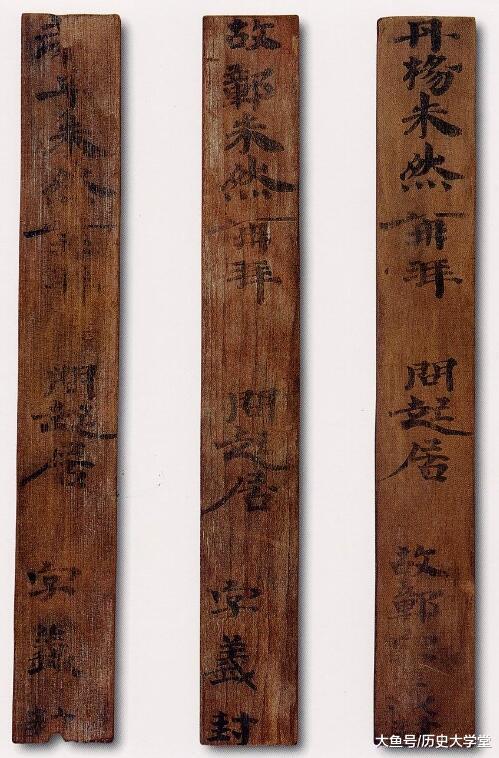 丹楊朱然再拜 問起居 故鄣字
故鄣朱然再拜 問起居 字義封
朱然再拜 問起居 字義封
大鱼号/历史大学堂